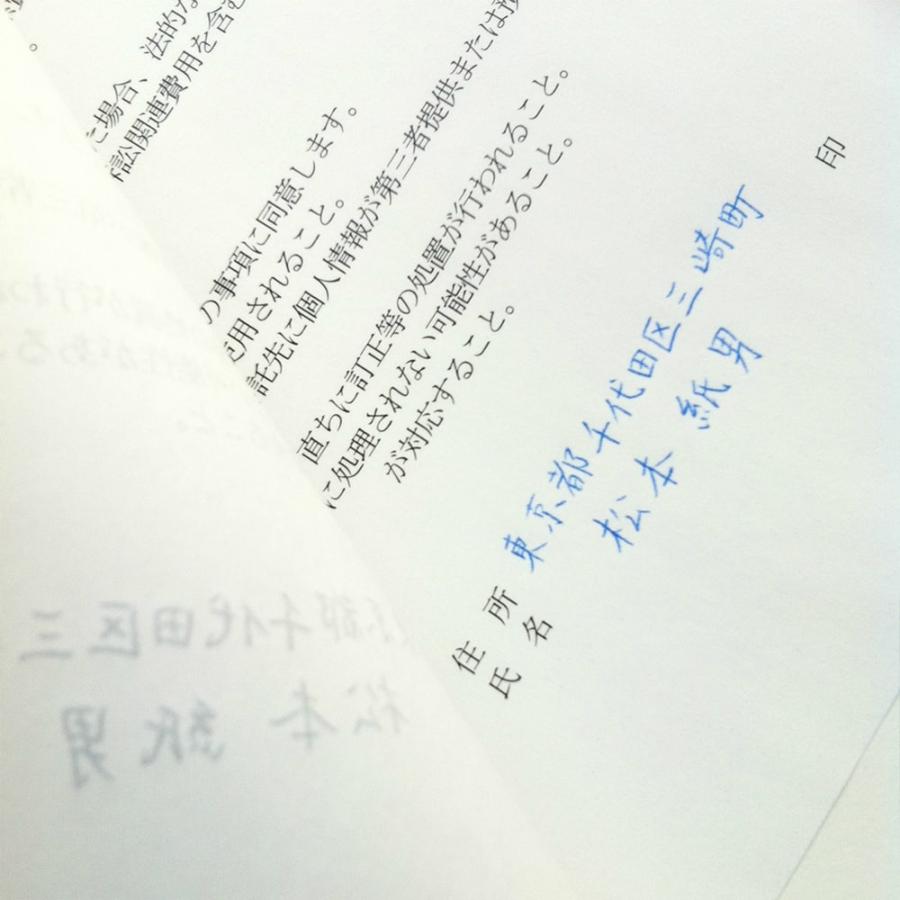 。
た場合、法的な
訟関連費用を含む
の事項に同意します。
使用されること。
託先に個人情報が第三者提供または預
直ちに訂正等の処置が行われること。
に処理されない可能性があること。
が対応すること。
住所 東京都千代田区三崎町
氏名 松本 紙男 印